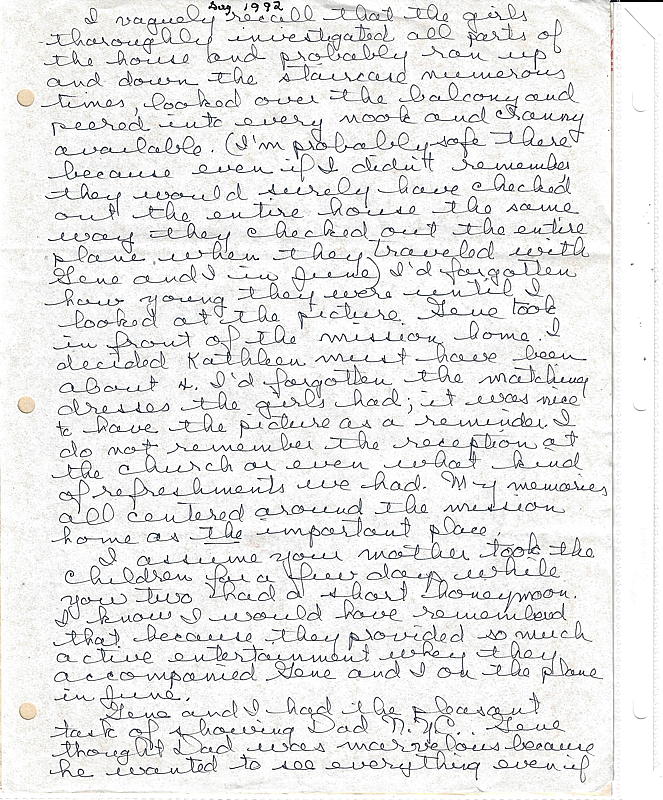 Aug 1992
I vaguely recall that the girls
thoroughly investigated all parts of
the house and probably ran up
and down the staircase numerous
times, looked over the balcony and
peered into every nook and cranny
available. (I'm probably safe there
because even if I didn't remember
they would surely have checked
out the entire house the same
way they checked out the entire
plane when they traveled with
Gene and I in June) I'd forgotten
how young they were until I
looked at the picture Gene took
in front of the mission home. I
decided Kathleen must have been
about I'd forgotten the matching
dresses the girls had; it was nice
to have the picture as a reminder. I
do not remember the reception at
the church or even what kind
of refreshments we had. My memories
all centered around the mission
home as the important place.
I assume your mother took the
children for a few days while
you two had a short honeymoon.
I know I would have remembered
that because they provided so much
active entertainment when they
accompanied Gene and I on the plane
in June.
Gene and I had the pleasant
task of showing Dad N.Y.C.. Gene
thought Dad was marvelous because
he wanted to see everything even if